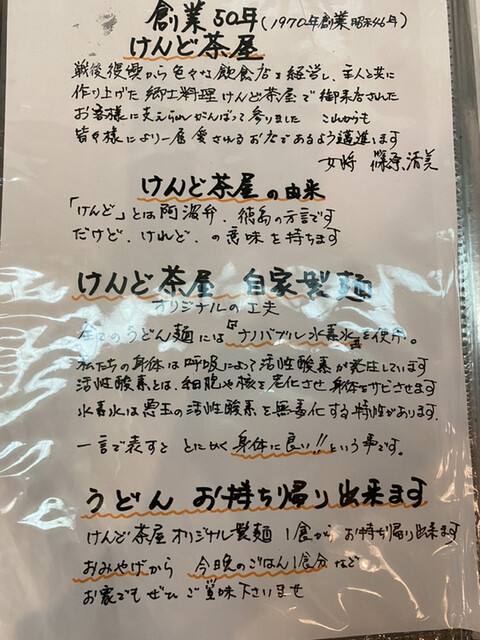 創業50年(1970年創業 昭和46年)
けんど茶屋
戦後復興から色々な飲食店を経営し、主人と共に
作り上げた郷土料理けんど茶屋で御来店された
お客様に支えられがんばって参りました これからも
皆々様により一層愛されるお店であるよう邁進います
女将 篠原清美
けんど茶屋の由来
「けんど」とは阿波弁、徳島の方言です
だけど、けれど、の意味を持ちます
けんど茶屋 自家製麺
オリジナルの工夫
全てのうどん麺には『ナノバブル水素水』を使用。
私たちの身体は呼吸によって活性酸素が発生しています
活性酸素とは、細胞や核を老化させ身体をサビさせます
水素水は悪玉の活性酸素を無毒化する特性があります.
一言で表すと とにかく身体に良い!!という事です。
うどん お持ち帰り出来ます
けんど茶屋オリジナル製麺 1食から お持ち帰り出来ます
おみやげから 今晩のごはん1食分など
お家でもぜひご賞味下さいませ